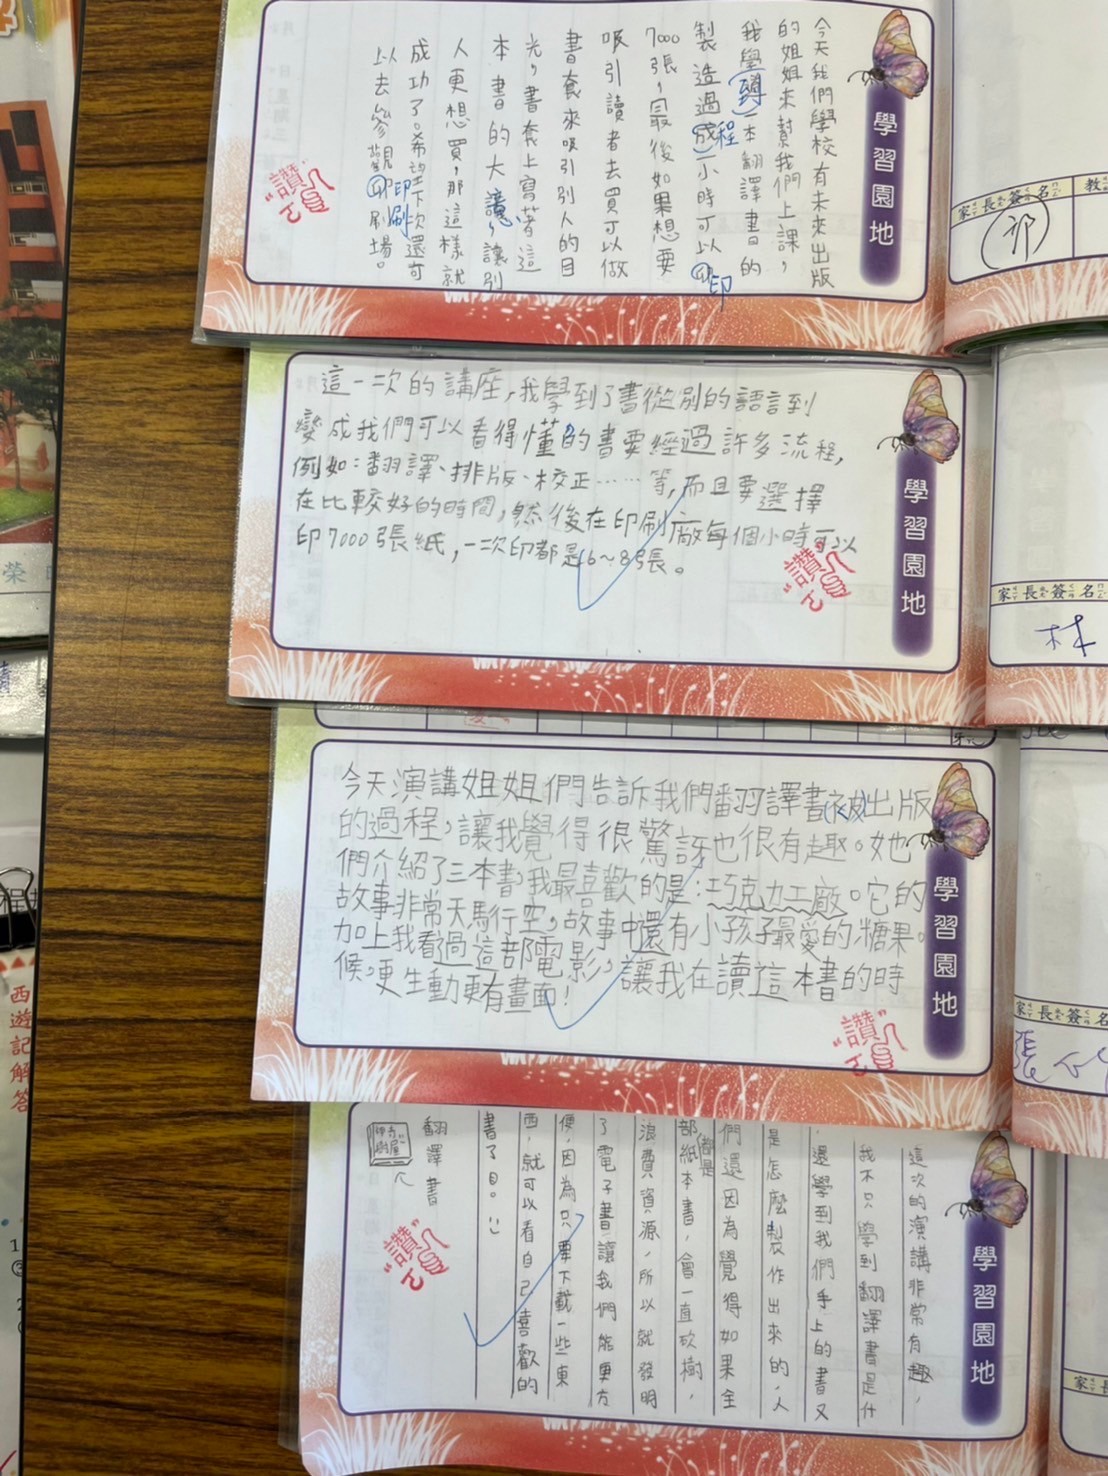 今天我們學校有未來出版
的姐姐來幫我們上課,
我學到一本翻譯書的
製造過程小時可以印
7000張,最後如果想要
吸引讀者去買可以做
書套來吸引別人的目
光,書套上寫著這
本書的大意,讓別
人更想買,那這樣就
成功了。希望下次還可
以去參觀印刷場。
讚
學習園地
家長簽名
教
這一次的講座,我學到了書從別的語言到
變成我們可以看得懂的書要經過許多流程,
例如:翻譯、排版、校正……等,而且要選擇
在比較好的時間,然後在印刷廠每個小時可以
印7000張紙,一次印都是6~8張。
讚
學習園地
家長簽名
林
今天演講姐姐們告訴我們翻譯書被出版
的過程,讓我覺得很驚訝也很有趣。她
們介紹了三本書,我最喜歡的是:巧克力工廠。它的
故事非常天馬行空,故事中還有小孩子最愛的糖果。
加上我看過這部電影,讓我在讀這本書的時
候,更生動更有畫面!
讚
學習園地
家長簽名
張
這次的演講非常有趣,
我不只學到翻譯書是什
還學到我們手上的書又
是怎麼製作出來的,人
們還因為覺得如果全
部都是紙本書,會一直砍樹,
浪費資源,所以就發明
了電子書讓我們能更方
便,因為只要下載一些東
西,就可以看自己喜歡的
書了目。
翻譯書
讚
學習園地
家長
西遊記解答